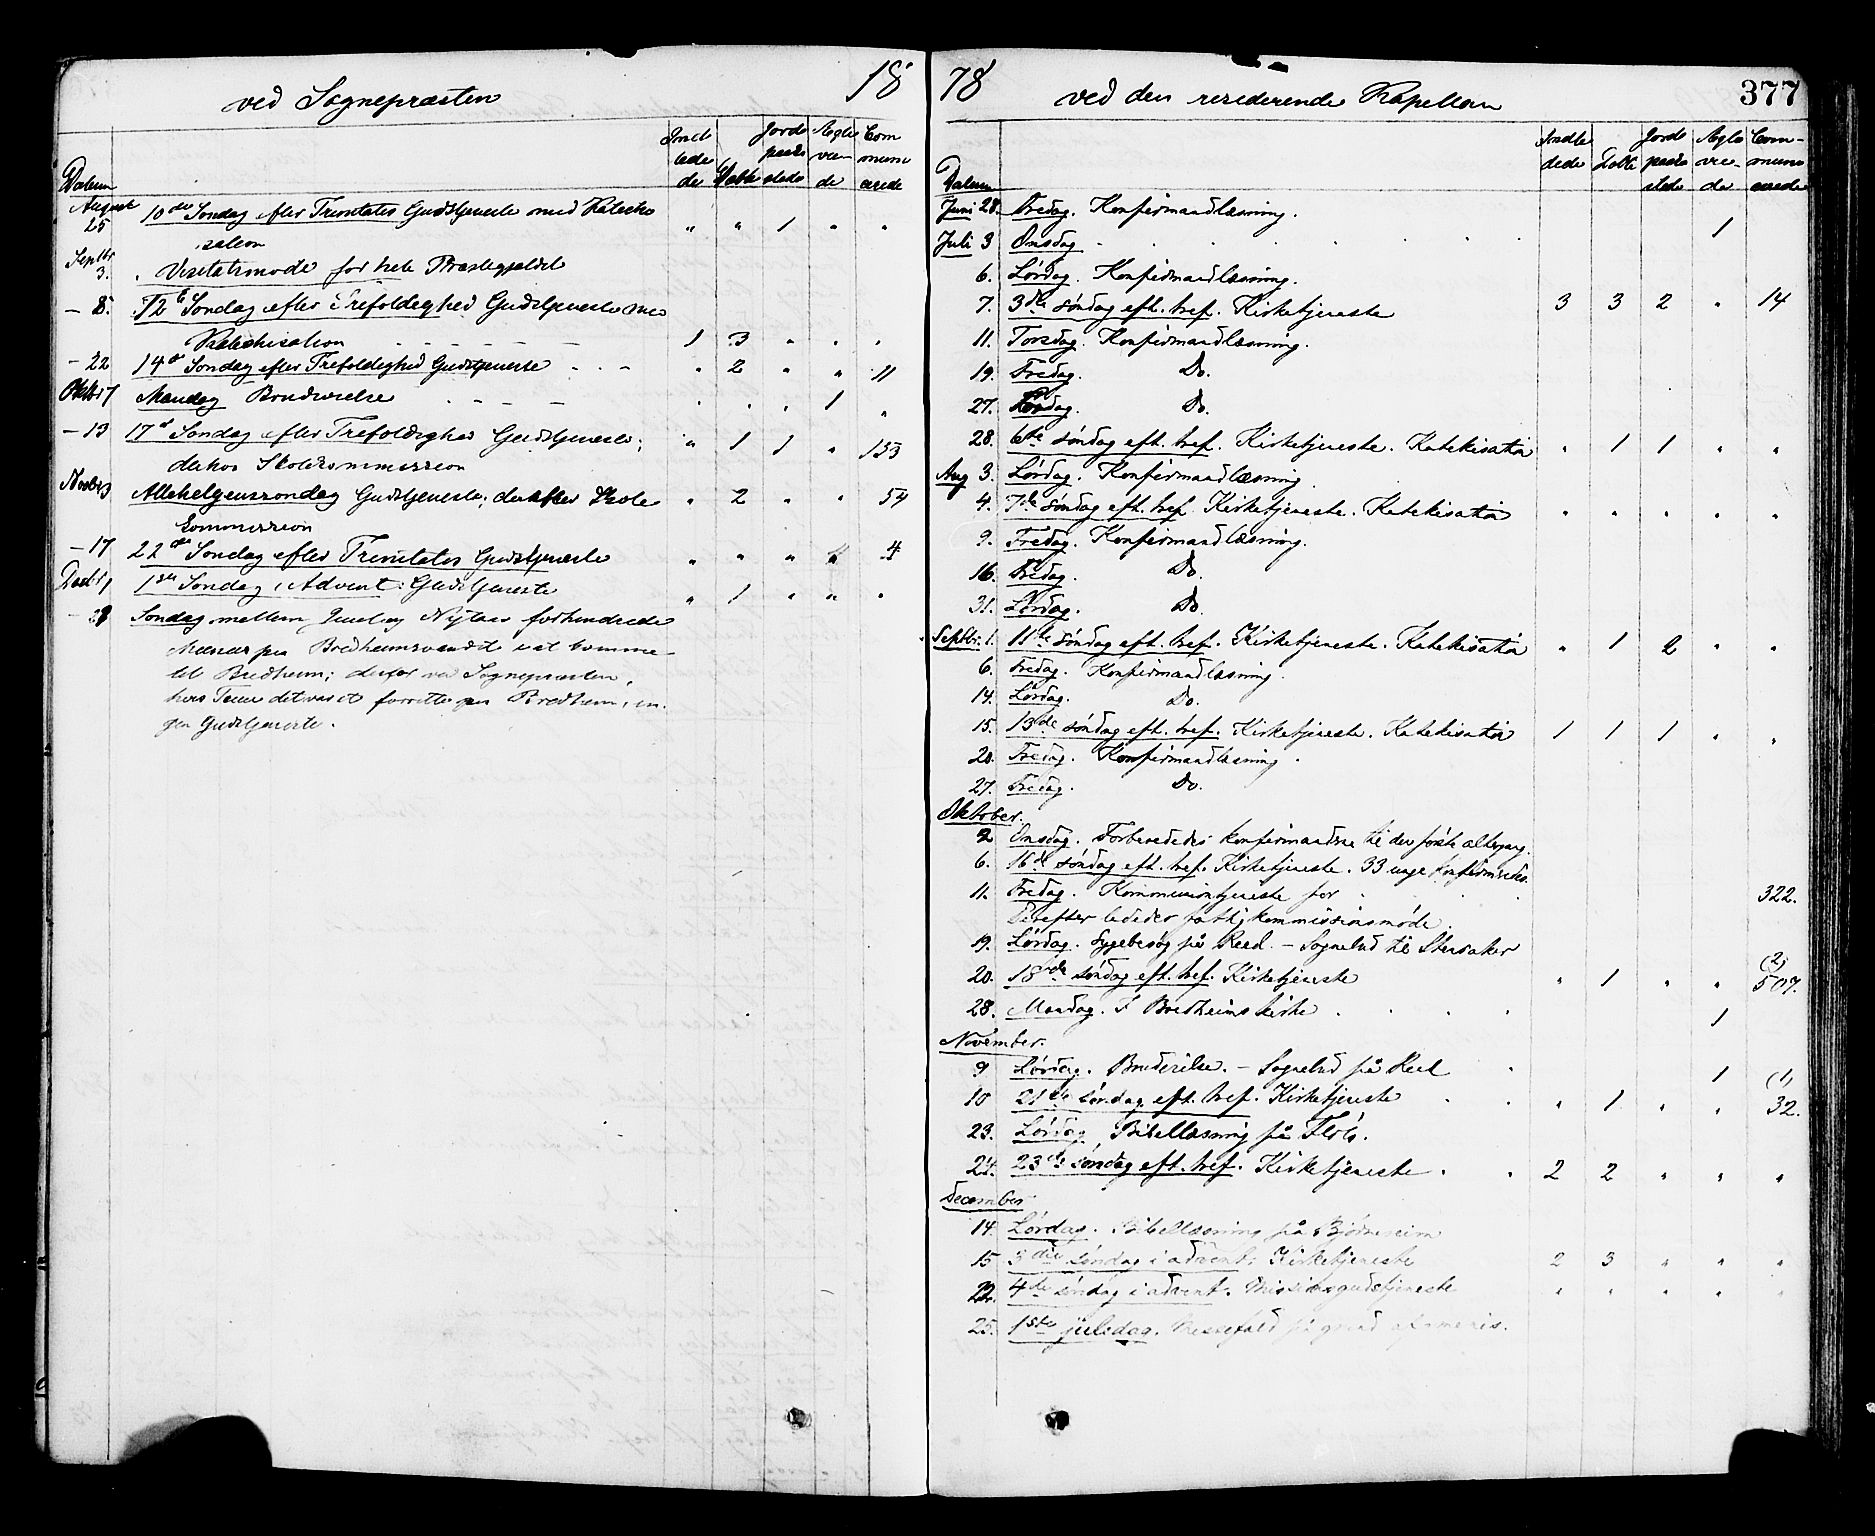 ved Sognepræsten 18
Datum Indledede Døbte Jordpaakastede Ægteviede Communicerede
August 25 10de Søndag efter Trinitatis Gudstjeneste med Katechi " " 1 " "
sation
Septbr 3. Visitatsmøde for hele Præstegjeldet
– 8. 12te Søndag efter Trefoldighed Gudstjeneste med
Katechisation – – – – – 1 3 " " "
– 22 14de Søndag efter Trefoldighed Gudstjeneste – – – " 2 " " 11
Oktbr 7 Mandag Brudevielse – – – – " " " 1 "
– 13 17de Søndag efter Trefoldighed Gudstjeneste; " 1 1 " 153
derhos Skolekommission
Novbr 3 Allehelgenssondag Gudstjeneste; derefter Skole " 2 " " 54
kommission
– 17 22de Søndag efter Trinitatis Gudstjeneste " " " " 4
Decbr 1 1ste Søndag i Advent: Gudstjeneste " 1 " " "
– 29 Søndag mellem Juul og Nytaar forhindrede
Menisen paa Bredheimsvandet i at komme
til Bredheim; derfor ved Sognepræsten,
hvis Tour det var at forrette paa Bredheim, in-
gen Gudstjeneste.
78 ved den residerende Kapellan 377
Datum Indledede Døbte Jordpaakastede Ægteviede Communicerede
Juni 28. Fredag. Konfirmandlæsning.
Juli 3 Onsdag . . . . . . 1
6. Lørdag. Konfirmandlæsning.
7. 3die søndag eft. tref. Kirketjeneste 3 3 2 " 14
11. Torsdag. Konfirmandlæsning.
19. Fredag. Do.
27. Lørdag. Do.
28. 6te søndag eft. tref. Kirketjeneste. Katekisation " 1 1 " "
Aug 3. Lørdag. Konfirmandlæsning
4. 7de søndag eft. tref. Kirketjeneste. Katekisation " " " " "
9. Fredag. Konfirmandlæsning.
16. Fredag. Do.
31. Lørdag. Do.
Septbr. 1. 11te søndag eft. tref. Kirketjeneste. Katekisation " 1 2 " "
6. Fredag. Konfirmandlæsning.
14. Lørdag. Do.
15. 13de søndag eft. tref. Kirketjeneste. Katekisation 1 1 1 " "
20. Fredag. Konfirmandlæsning.
27. Fredag. Do.
Oktober.
2 Onsdag. Forberededes konfirmanderne til den første altergang.
6. 16de søndag eft. tref. Kirketjeneste. 33 unge konfirmeredes.
11. Fredag. Kommuniontjeneste for . . . 322.
Derefter lededes fattigkommissionsmøde.
19. Lørdag. Sygebesøg på Reed. – Sognebud til
20. 18de søndag eft. tref. Kirketjeneste " 1 " " (2) 507.
28. Mandag. I Bredheims kirke . . . . 1
November.
9 Lørdag. Brudevielse. – Sognebud på Reed . 1 (1)
10 21de søndag eft. tref. Kirketjeneste . . " 1 " " 32.
23. Lørdag. Bibellæsning på Flolo.
24. 23de søndag eft. tref. Kirketjeneste . . 2 2 " " "
December
14. Lørdag. Bibellæsning på
15 3die søndag i advent. Kirketjeneste 2 3 " " "
22. 4de søndag i advent. Missionsgudstjeneste " " " " "
25. 1ste juledag. Messefald på grund af menis.